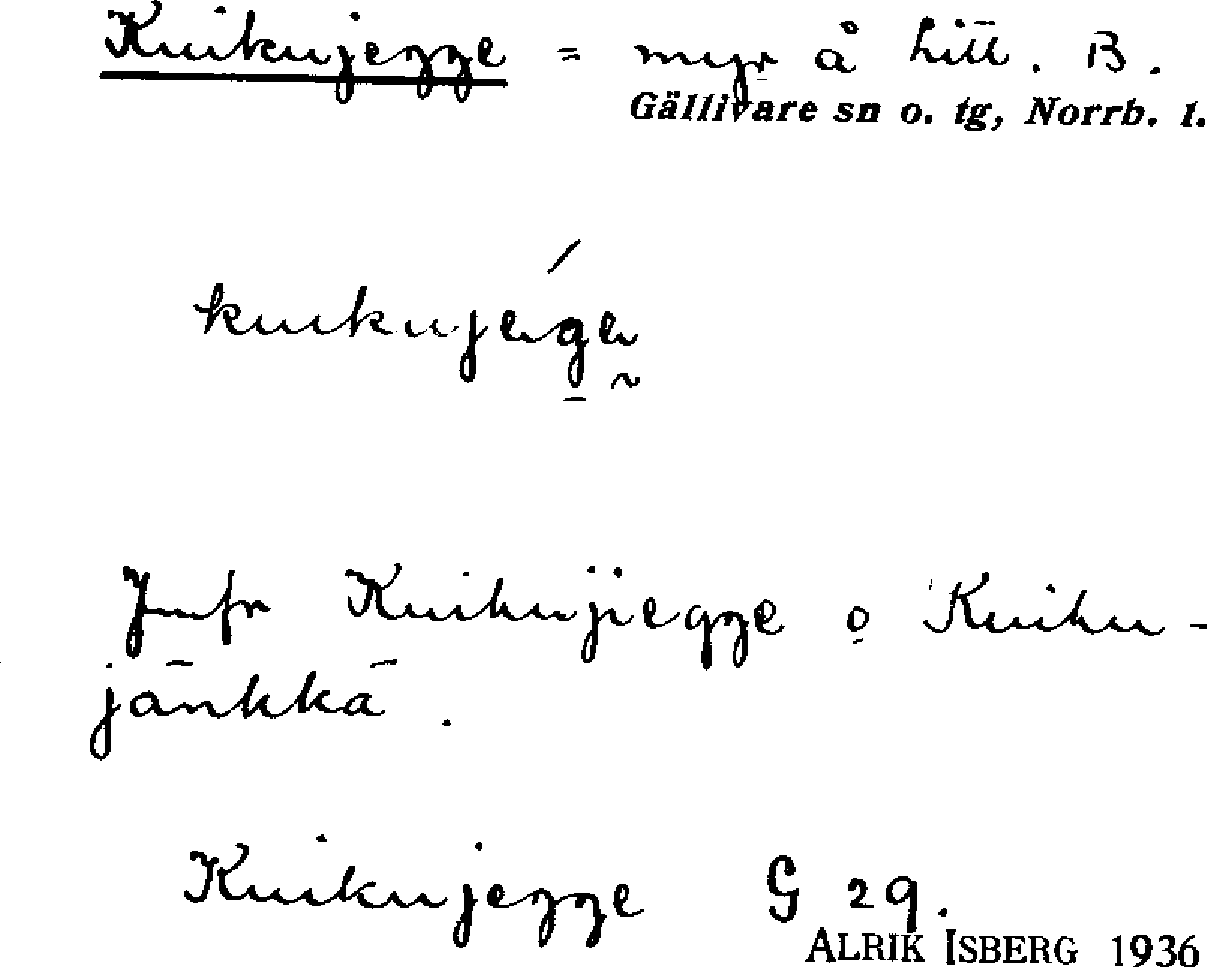 Kuikujegge = myr å Litt. B.
Gällivare sn o. tg, Norrb. l.
Jmfr Kuikujiegge o Kuiku-
jänkkä.
Kuikujegge G 29.
ALRIK ISBERG 1936